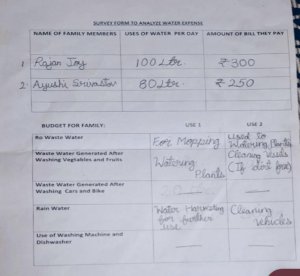 SURVEY FORM TO ANALYZE WATER EXPENSE
NAME OF FAMILY MEMBERS USES OF WATER PER DAY AMOUNT OF BILL THEY PAY
1 Rajan Joy 100 Ltr. ₹300
2 Ayushi Srivastav 80 Ltr. ₹250
BUDGET FOR FAMILY: USE 1 USE 2
Ro Waste Water For Mopping Used to Watering Plants
Waste Water Generated After Washing Vegtables and Fruits Watering Plants Cleaning (If dirt free)
Waste Water Generated After Washing Cars and Bike
Rain Water Water Harvesting for further use Cleaning Vehicles
Use of Washing Machine and Dishwasher